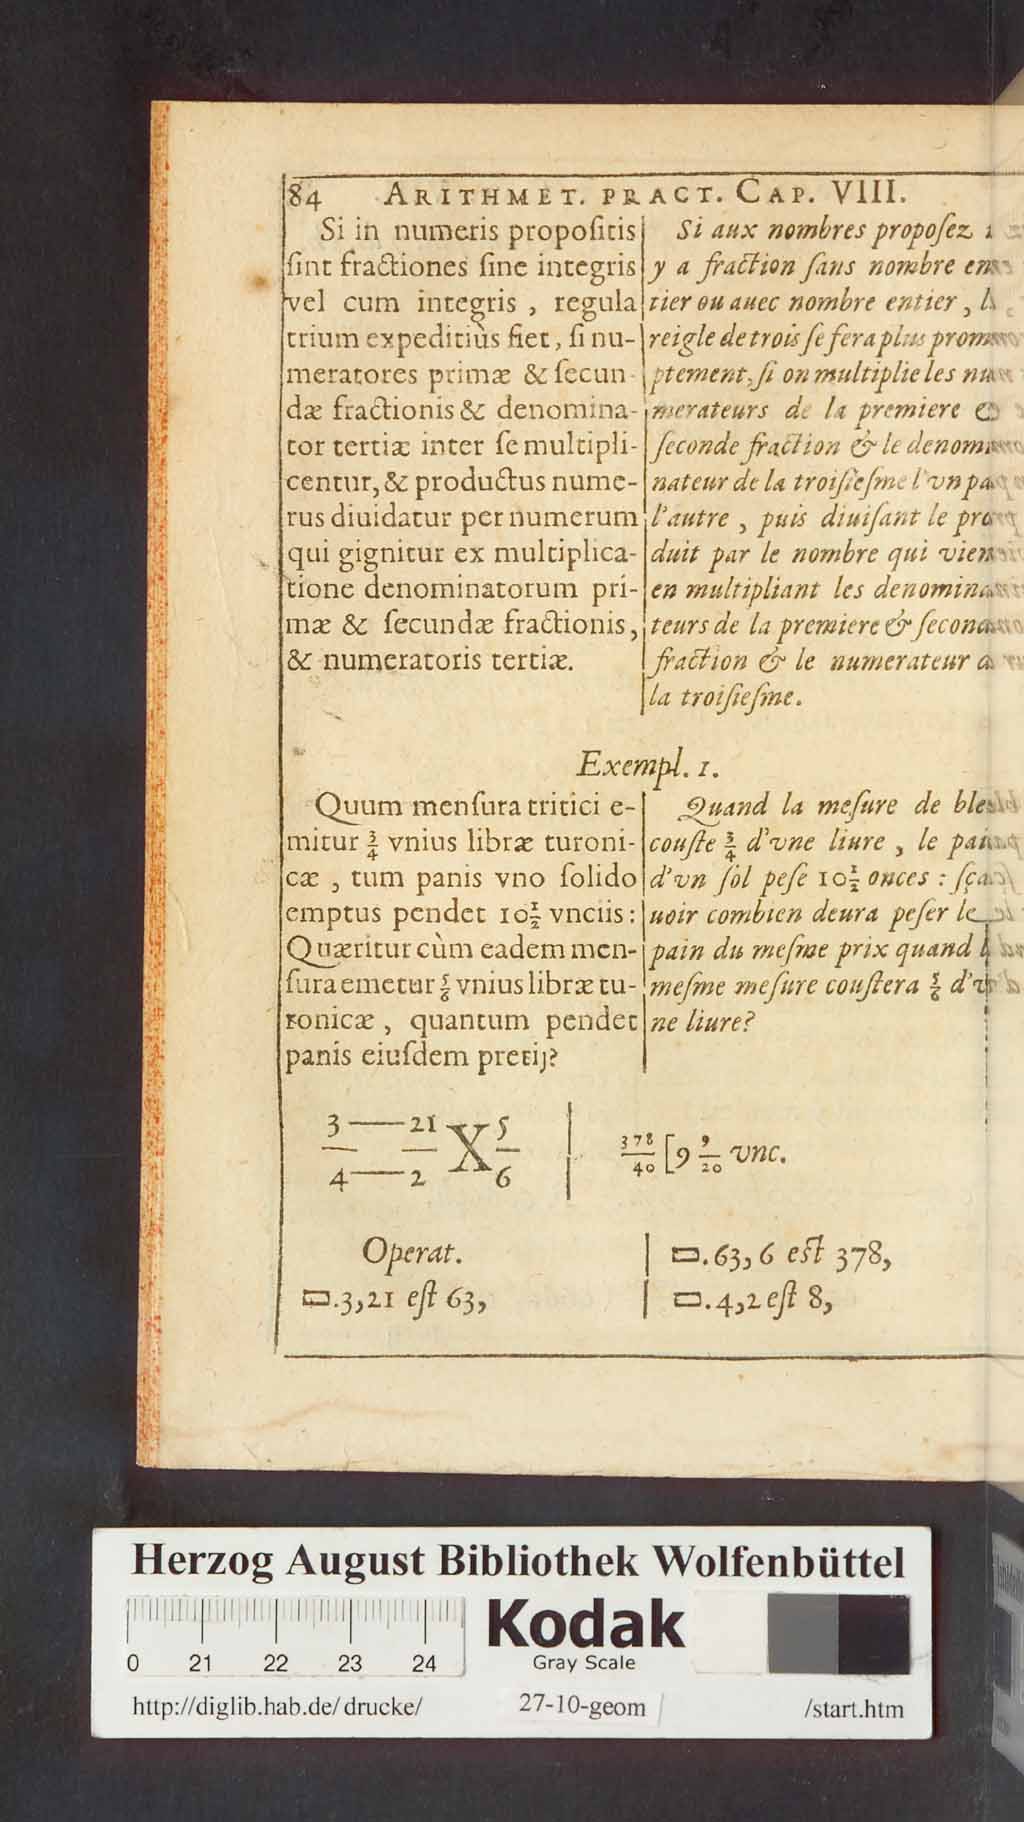 84 ARITHMET. PRACT. CAP. VIII.
Si in numeris propoſitis
ſint fractiones ſine integris
vel cum integris , regula
trium expeditiùs fiet, ſi nu-
meratores primæ & ſecun-
dæ fractionis & denomina-
tor tertiæ inter ſe multipli-
centur, & productus nume-
rus diuidatur per numerum
qui gignitur ex multiplica-
tione denominatorum pri-
mæ & ſecundæ fractionis,
& numeratoris tertiæ.
Si aux nombres propoſez
y a fraction ſans nombre en-
tier ou auec nombre entier,
reigle de trois ſe fera plus prom-
ptement, ſi on multiplie les nu-
merateurs de la premiere &
ſeconde fraction & le denomi-
nateur de la troiſieſme l'vn pa
l'autre , puis diuiſant le pro
duit par le nombre qui vien
en multipliant les denomina-
teurs de la premiere & ſecon
fraction & le numerateur
la troiſieſme.
Exempl. 1.
Quum menſura tritici e-
mitur 3/4 vnius libræ turoni-
cæ , tum panis vno ſolido
emptus pendet 10 1/2 vnciis:
Quæritur cùm eadem men-
ſura emetur 5/6 vnius libræ tu-
ronicæ , quantum pendet
panis eiuſdem pretij?
Quand la meſure de ble
couſte 3/4 d'vne liure , le pain
d'vn ſol peſe 10 1/2 onces : ſça-
uoir combien deura peſer le
pain du meſme prix quand
meſme meſure couſtera 5/6 d'v
ne liure?
3 — 21 X 5
4 — 2 6
378/40 [9 9/20 vnc.
Operat.
▭.3,21 eſt 63,
▭.63, 6 eſt 378,
▭.4,2 eſt 8,
Herzog August Bibliothek Wolfenbüttel
Kodak
Gray Scale
0 21 22 23 24
http://diglib.hab.de/drucke/ 27-10-geom /start.htm